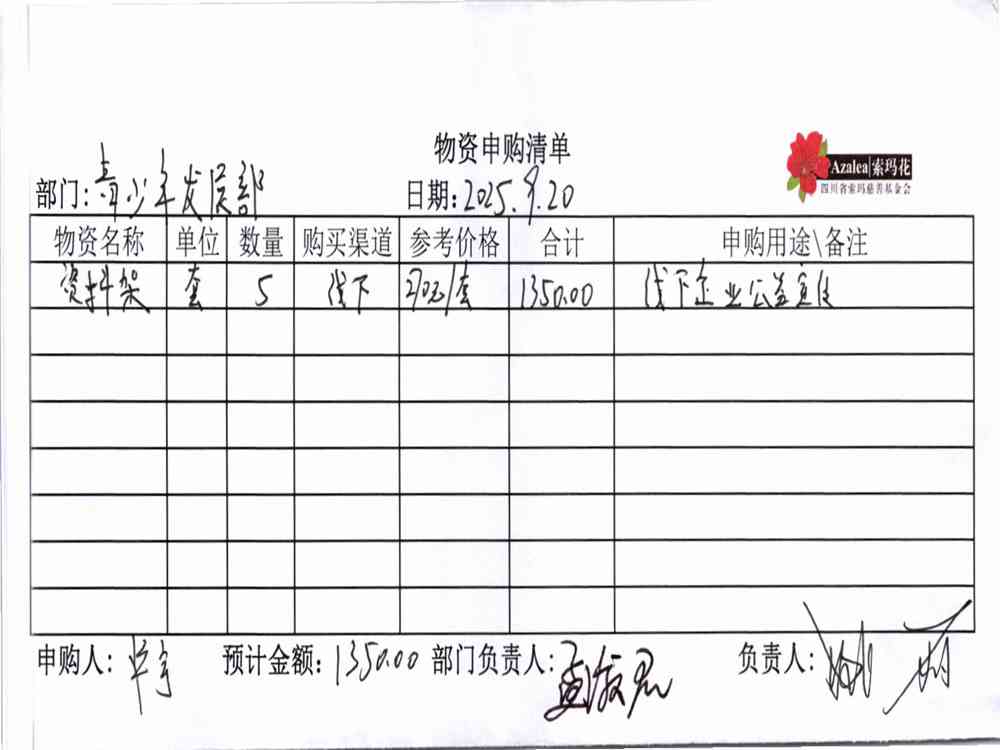 物资申购清单
Azalea 索玛花
四川省索玛慈善基金会
部门:青少年发展部 日期:2025.9.20
物资名称 单位 数量 购买渠道 参考价格 合计 申购用途\备注
资料架 套 5 线下 270元/套 1350.00 线下企业公益宣传
申购人: 预计金额:1350.00 部门负责人: 负责人: